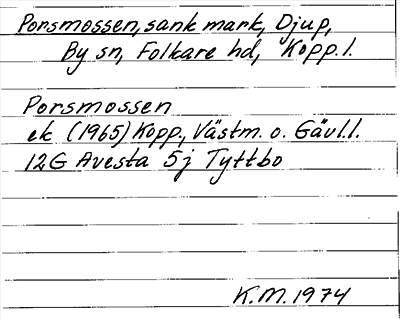 Porsmossen, sank mark, Djup,
By sn, Folkare hd, Kopp. l.
Porsmossen
ek (1965) Kopp., Västm. o. Gävl.l.
12G Avesta 5j Tyttbo
K.M. 1974